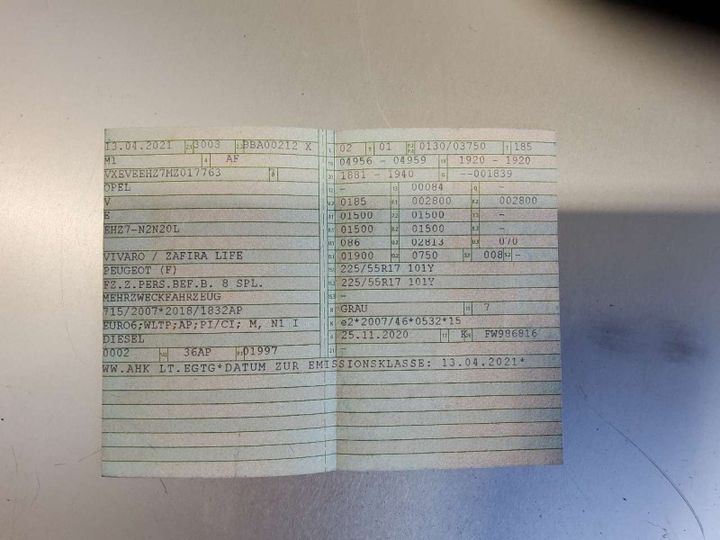 13.04.2021 3003 BBA00212 X
M1 4 AF
VXEVEEHZ7MZ017763
OPEL
V
E
EHZ7-N2N20L
VIVARO / ZAFIRA LIFE
PEUGEOT (F)
FZ.Z.PERS.BEF.B. 8 SPL.
MEHRZWECKFAHRZEUG
715/2007*2018/1832AP
EURO6;WLTP;AP;PI/CI; M, N1 I
DIESEL
0002 36AP 01997
02 01 0130/03750 185
04956 - 04959 1920 - 1920
1881 - 1940 --001839
- 00084 -
0185 002800 002800
01500 01500 -
01500 01500 -
086 02813 070
01900 0750 008 -
225/55R17 101Y
225/55R17 101Y
-
GRAU 7
e2*2007/46*0532*15
25.11.2020 K FW986816
-
WW.AHK LT.EGTG*DATUM ZUR EMISSIONSKLASSE: 13.04.2021*